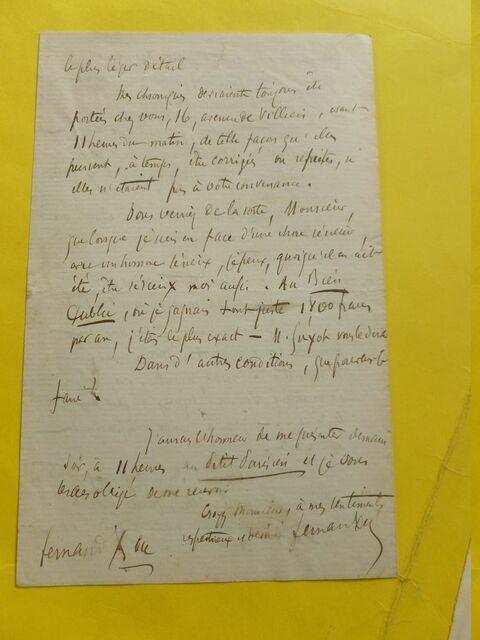 le plus léger détail
Mes chroniques devraient toujours être
portées chez vous, 16, avenue de Villiers, avant
11 heures du matin, de telle façon qu'elles
pussent, à temps, être corrigées ou refaites, si
elles n'étaient pas à votre convenance.
Vous verriez de la sorte, Monsieur,
que lorsque je suis en face d'une chose sérieuse,
avec un homme sérieux, je peux, quoiqu'il en ait
été, être sérieux moi aussi. Au Bien
Public, où je gagnais tout juste 1800 francs
par an, j'étais le plus exact — M. Guyot vous le dira
Dans d'autres conditions, que
J'aurai l'honneur de me présenter demain
soir, à 11 heures au Petit Parisien et je vous
serais obligé de me recevoir
Croyez Monsieur, à mes sentiments
respectueux et
fernand